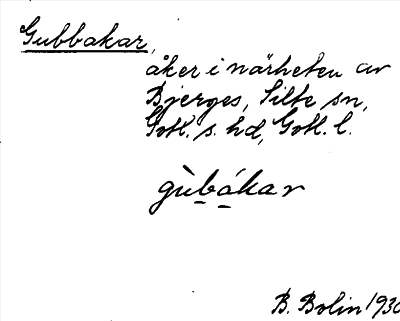 Gubbakar,
åker i närheten av
Bjerges, Silte sn,
Gotl. s. hd, Gotl. l.
gùbákar
B. Bolin 1930